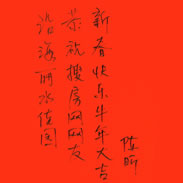 沿海丽水佳园
恭祝搜房网网友
新春快乐牛年大吉